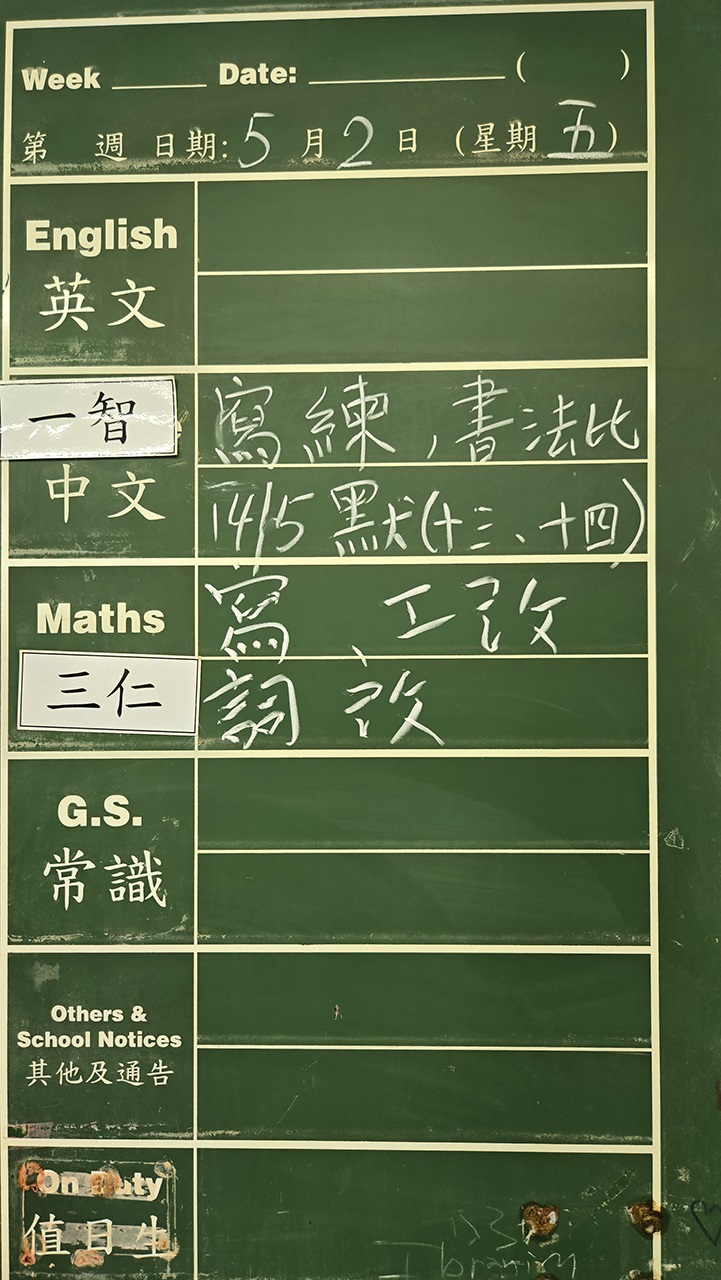 Week ____ Date: ________ ( )
第 週 日期: 5 月 2 日 (星期 五)
English
英文
一智
中文
寫練,書法比
14/5 默(十三、十四)
Maths
三仁
寫、工改
詞改
G.S.
常識
Others &
School Notices
其他及通告
On Duty
值日生